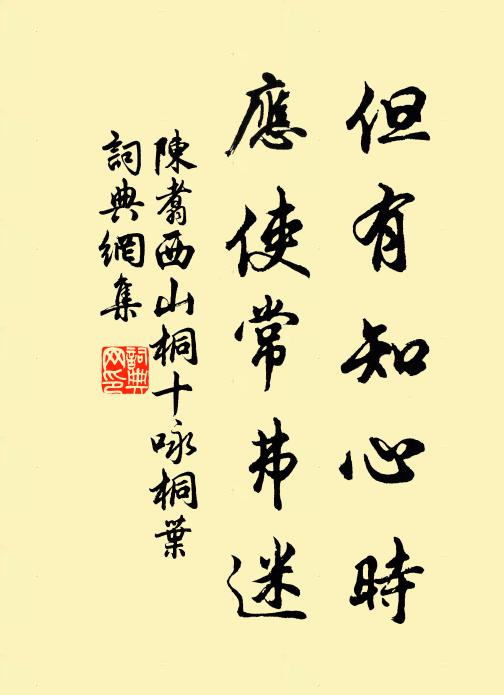 但有知心時
應使常弗迷
陳翥西山桐十咏桐葉
詞典網集
詞典网印